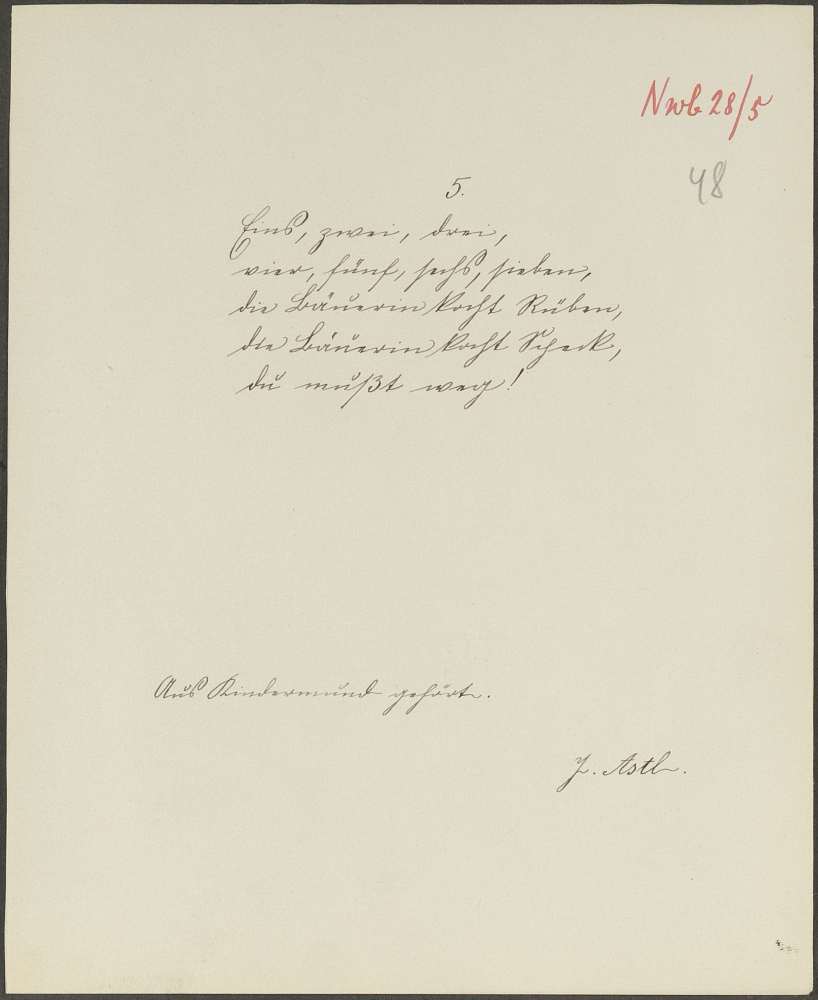 Nwb 28/5
48
5.
Eins, zwei, drei,
vier, fünf, sechs, sieben,
die Bäuerin kocht Rüben,
die Bäuerin kocht Speck,
du mußt weg!
Aus Kindermund gehört.
J. Astl.